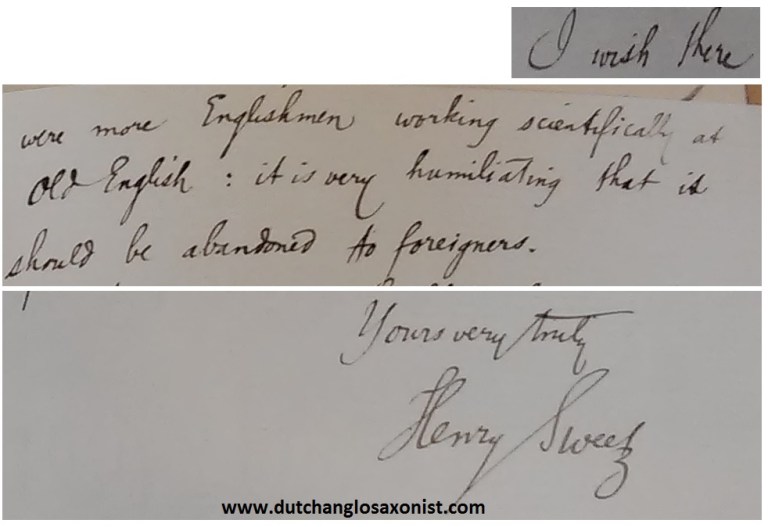 I wish there
were more Englishmen working scientifically at
Old English : it is very humiliating that it
should be abandoned to foreigners.
Yours very truly
Henry Sweet
www.dutchanglosaxonist.com